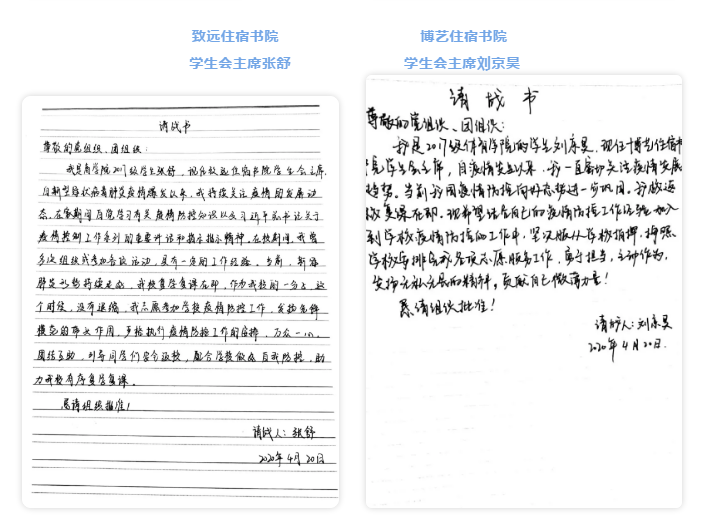 致远住宿书院
学生会主席张舒
请战书
尊敬的党组织、团组织:
我是商学院2017级学生张舒,现任致远住宿书院学生会主席
自新型冠状病毒肺炎疫情爆发以来,我持续关注疫情的发展动
态,在家期间自觉学习有关疫情防控知识以及习近平总书记关于
疫情控制工作系列的重要讲话和指示批示精神。在校期间,我曾
多次组织或参加各项活动,具有一定的工作经验。当前,新冠
肺炎形势持续向好,我校复学复课在即,作为我校的一份子,这
个时候,没有退缩,我志愿参加学校疫情防控工作,发挥先锋
模范的带头作用,严格执行疫情防控工作的安排,万众一心,
团结互助,引导同学们安全返校,配合学校做好自我防控,助
力我校有序复学复课。
恳请组织批准!
请战人:张舒
2020年4月20日
博艺住宿书院
学生会主席刘京昊
请战书
尊敬的党组织、团组织:
我是2017级体育学院的学生刘京昊,现任博艺住宿书
院学生会主席,自疫情发生以来,我一直密切关注疫情发展
趋势。当前我国疫情防控向好态势进一步巩固,我校返
校复课在即。现希望结合自己的疫情防控工作经验加入
到学校疫情防控的工作中,坚决服从学校指挥,按照
学校安排参与各项志愿服务工作,勇于担当,主动作为,
发扬无私奉献的精神,贡献自己微薄力量!
恳请组织批准!
请战人:刘京昊
2020年4月20日.